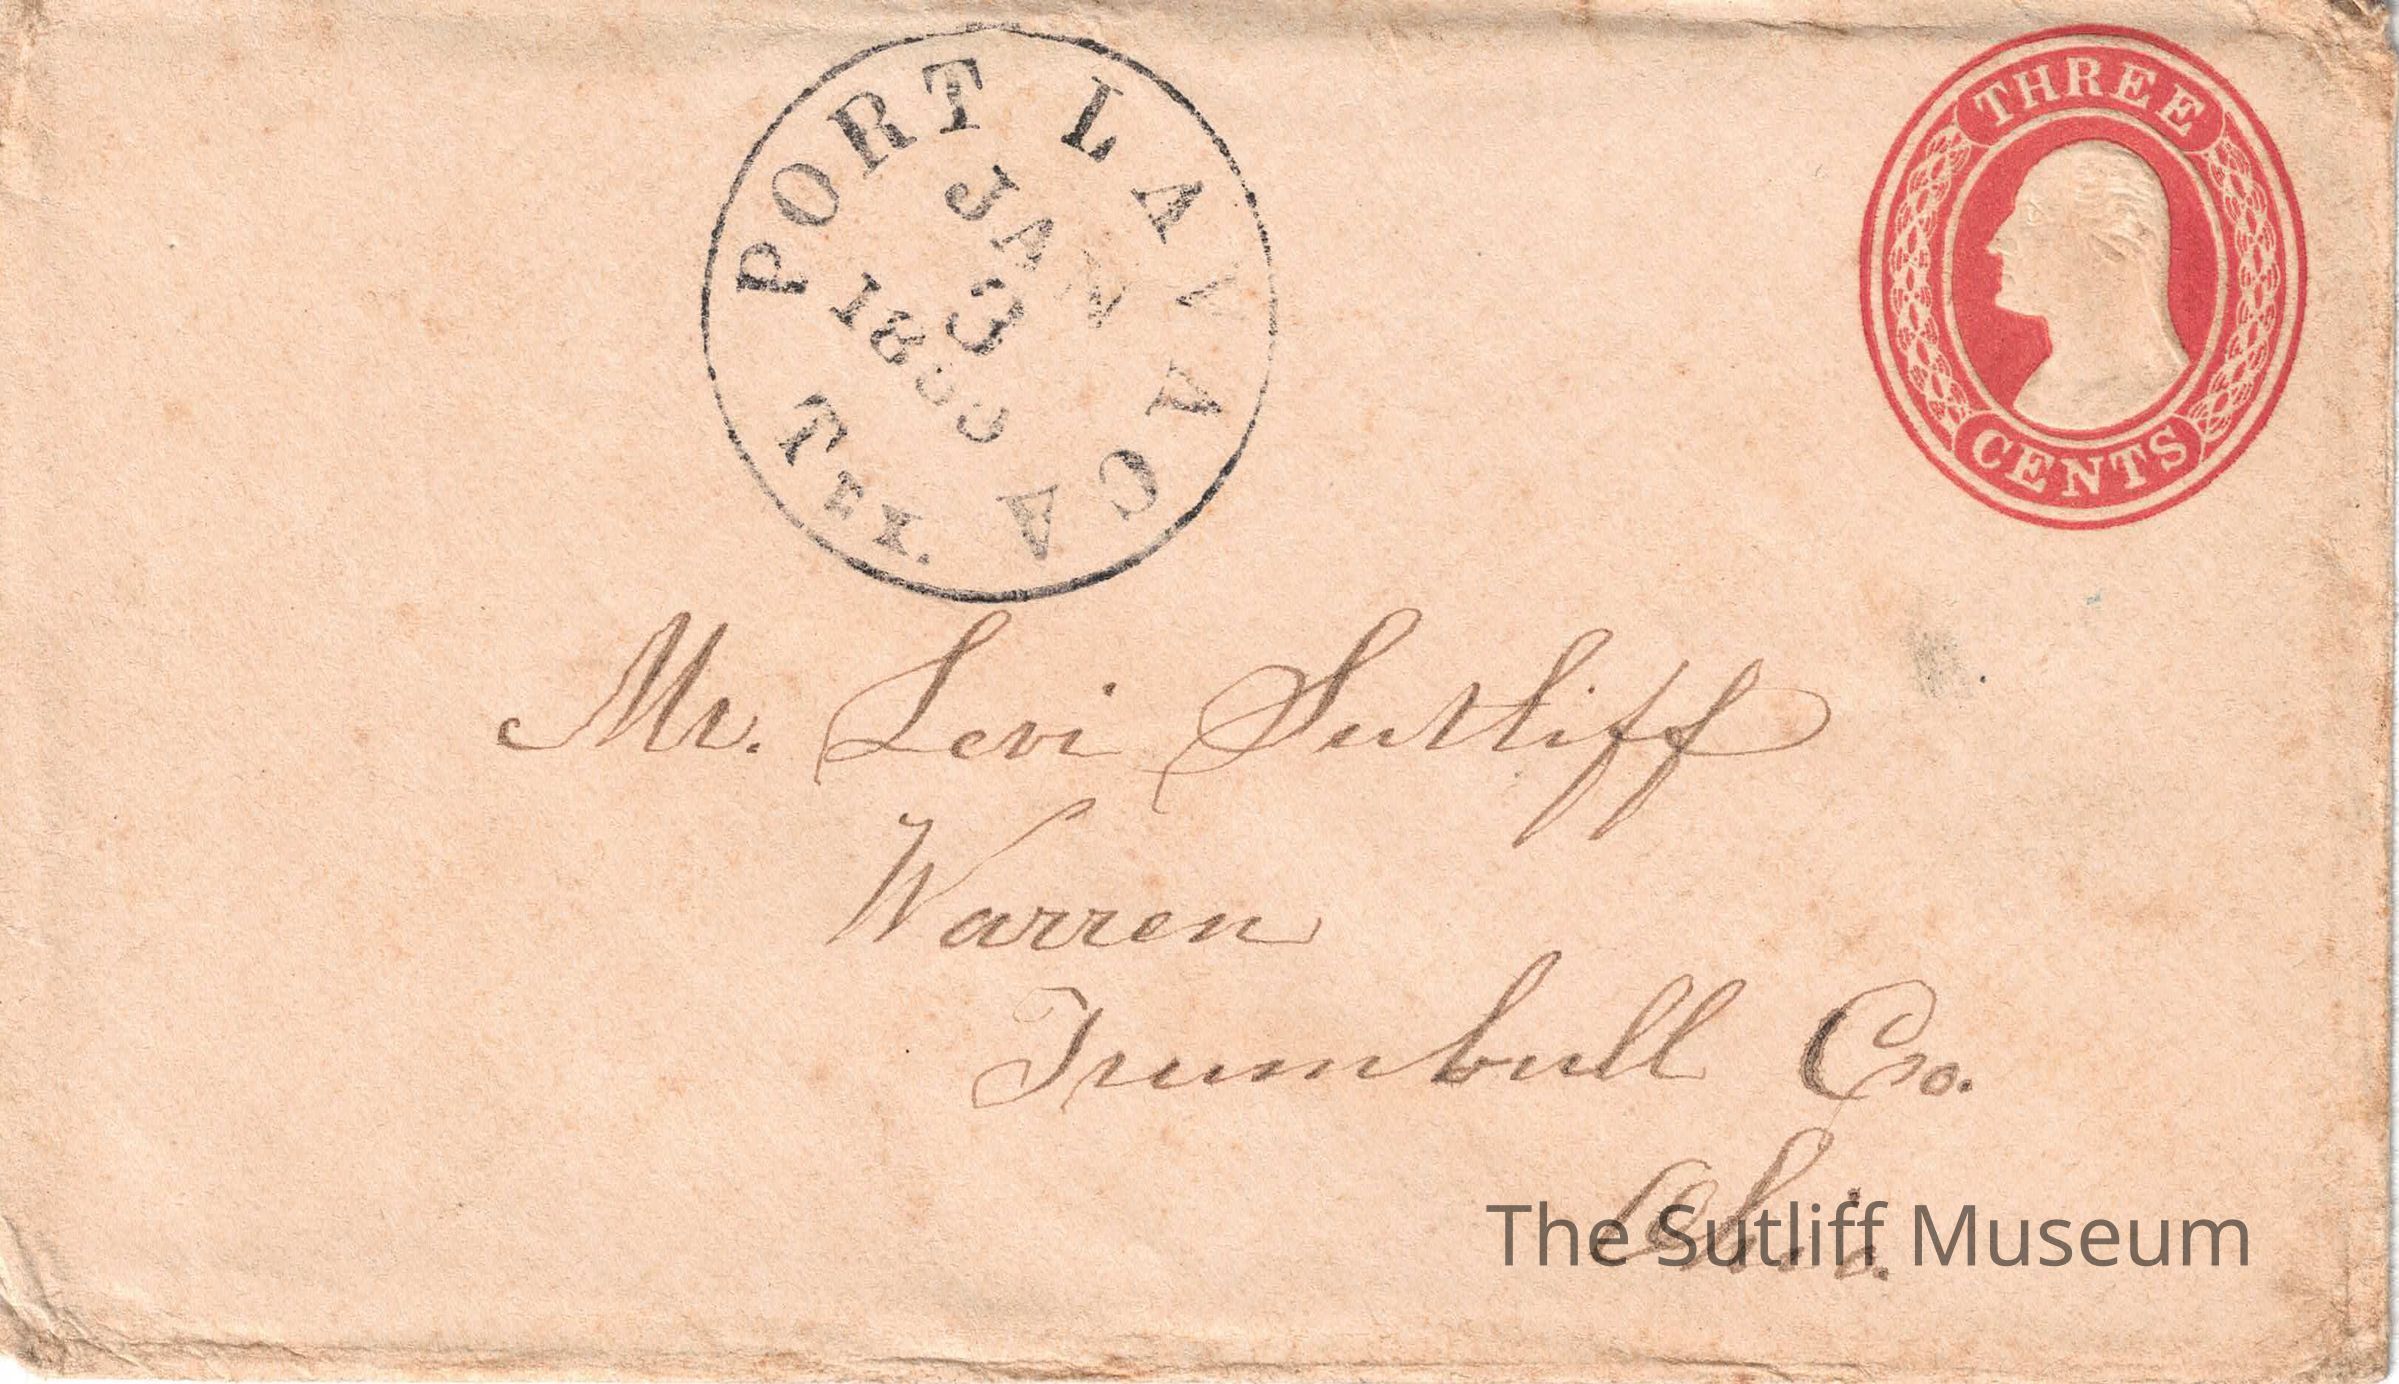 PORT LAVACA
TEX.
JAN
3
THREE
CENTS
Mr. Levi Sutliff
Warren
Trumbull Co.
Ohio.
The Sutliff Museum